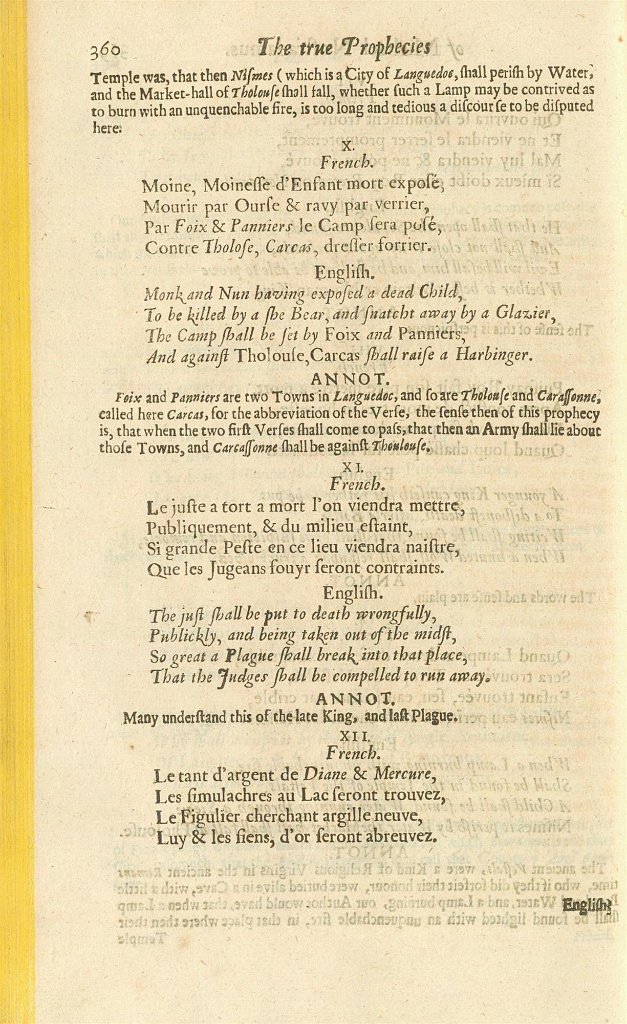 360 The true Prophecies
Temple was, that then Niſmes (which is a City of Languedoc, ſhall periſh by Water,
and the Market-hall of Tholouſe ſhall fall, whether ſuch a Lamp may be contrived as
to burn with an unquenchable fire, is too long and tedious a diſcourſe to be diſputed
here.
X.
French.
Moine, Moineſſe d'Enfant mort expoſé,
Mourir par Ourſe & ravy par verrier,
Par Foix & Panniers le Camp ſera poſé,
Contre Tholoſe, Carcas, dreſſer forrier.
Engliſh.
Monk and Nun having expoſed a dead Child,
To be killed by a ſhe Bear, and ſnatcht away by a Glazier,
The Camp ſhall be ſet by Foix and Panniers,
And againſt Tholouſe, Carcas ſhall raiſe a Harbinger.
ANNOT.
Foix and Panniers are two Towns in Languedoc, and ſo are Tholouſe and Caraſſonne,
called here Carcas, for the abbreviation of the Verſe, the ſenſe then of this prophecy
is, that when the two firſt Verſes ſhall come to paſs, that then an Army ſhall lie about
thoſe Towns, and Carcaſſonne ſhall be againſt Thoulouſe.
XI.
French.
Le juſte a tort a mort l'on viendra mettre,
Publiquement, & du milieu eſtaint,
Si grande Peſte en ce lieu viendra naiſtre,
Que les Jugeans fouyr ſeront contraints.
Engliſh.
The juſt ſhall be put to death wrongfully,
Publickly, and being taken out of the midſt,
So great a Plague ſhall break into that place,
That the Judges ſhall be compelled to run away.
ANNOT.
Many underſtand this of the late King, and laſt Plague.
XII.
French.
Le tant d'argent de Diane & Mercure,
Les ſimulachres au Lac ſeront trouvez,
Le Figulier cherchant argille neuve,
Luy & les ſiens, d'or ſeront abreuvez.
Engliſh: